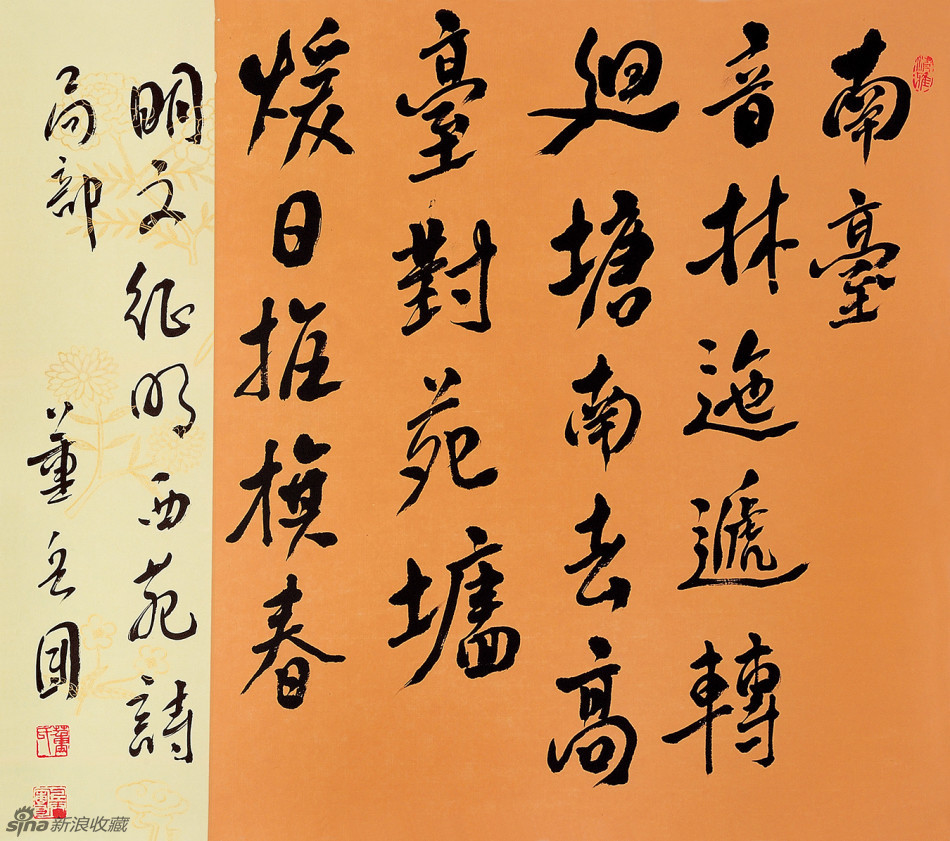 南臺
青林迤遞轉
廻塘南去高
臺對苑墻
煖日旌旗春
明文征明西苑詩
局部 董国
sina新浪收藏